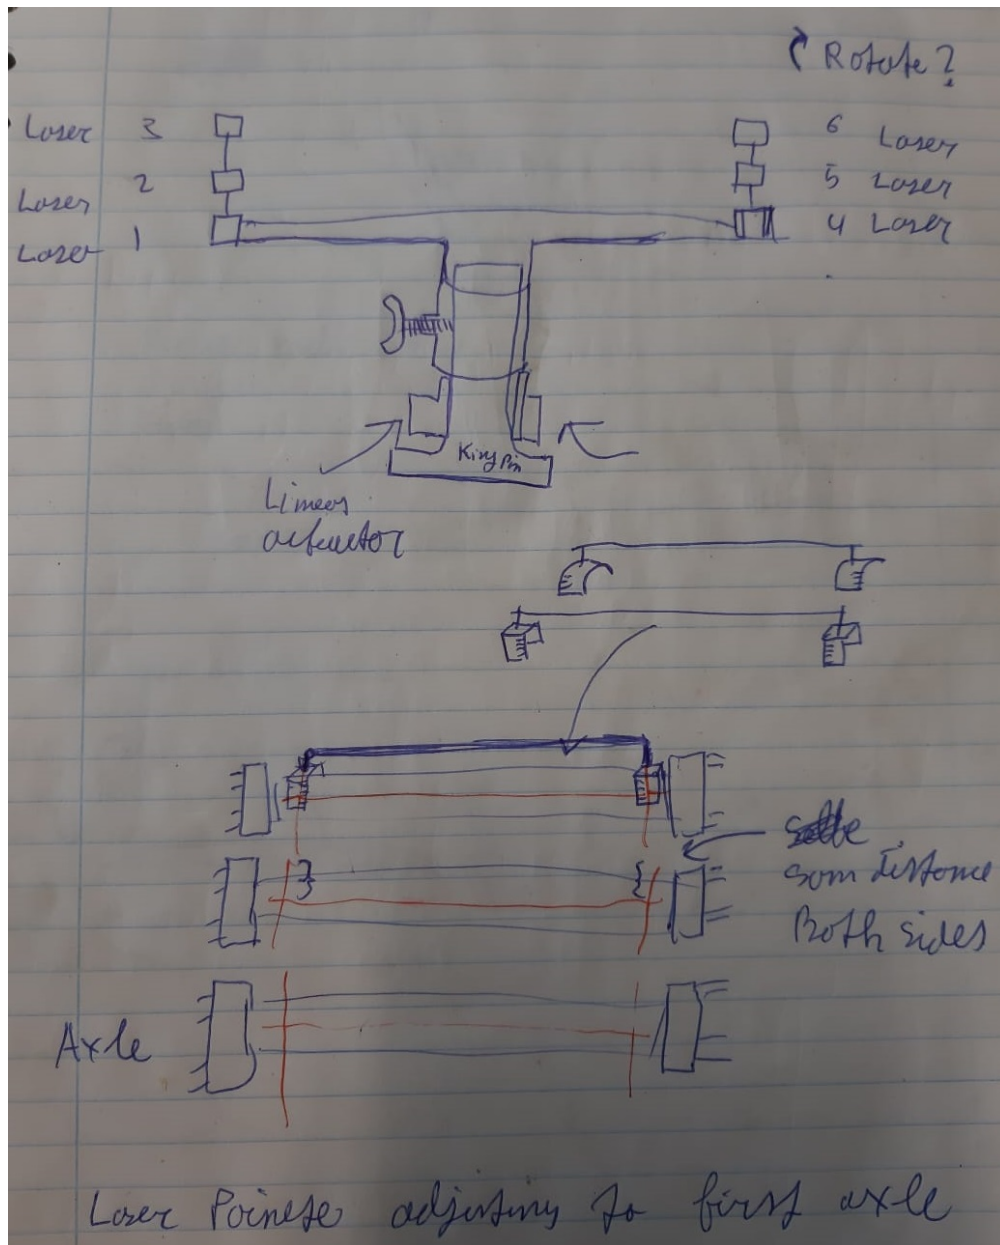 Rotate?
Laser 3
6 Laser
Laser 2
5 Laser
Laser 1
4 Laser
King Pin
Linear
actuator
som distance
Both sides
Axle
Laser Pointer adjusting to first axle